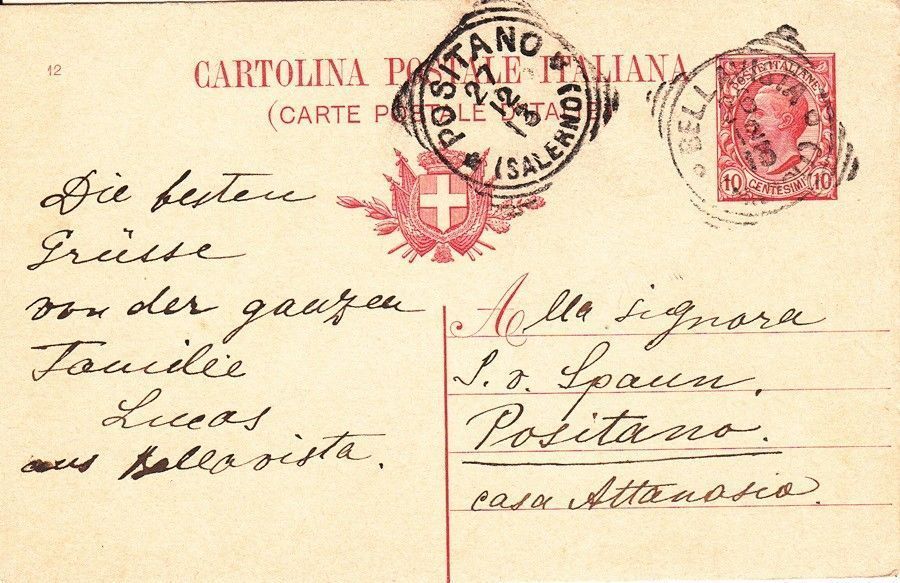 12
CARTOLINA POSTALE ITALIANA
(CARTE POSTALE D'ITALIE)
POSITANO
27
12
13
(SALERNO)
BELLAVISTA
POSTE ITALIANE
10 CENTESIMI 10
Die besten
Grüsse
von der ganzen
Familie
Lucas
aus Bellavista.
Alla signora
S. v. Spaun.
Positano.
casa Attanasio.